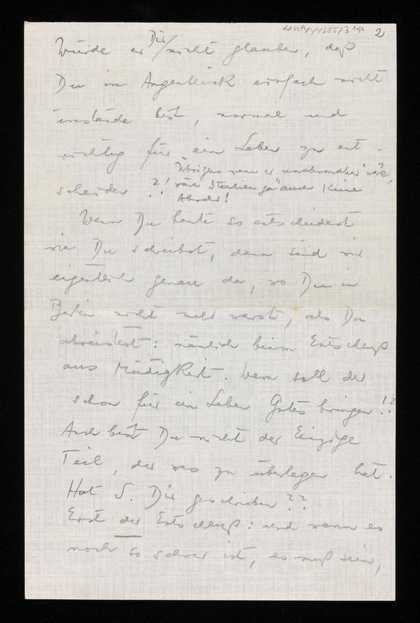 2
würde es Dir nicht glauben, daß
Du im Augenblick einfach nicht
imstande bist, normal und
richtig für ein Leben zu ent-
scheiden ?!
Übrigens wenn er
wäre Stendhal ja auch keine
Wenn Du heute so entscheidest
wie Du schreibst, dann sind wir
eigentlich genau da, wo Du in
Berlin nicht mehr warst, als Du
abreistest: nämlich beim Entschluß
aus Müdigkeit. Wem soll der
schon für ein Leben Gutes bringen!?
Auch bist Du nicht der Einzige
Teil, der was zu überlegen hat.
Hat S. Dir geschrieben??
Erst der Entschluß: und wenn es
noch so schwer ist, es muß sein,